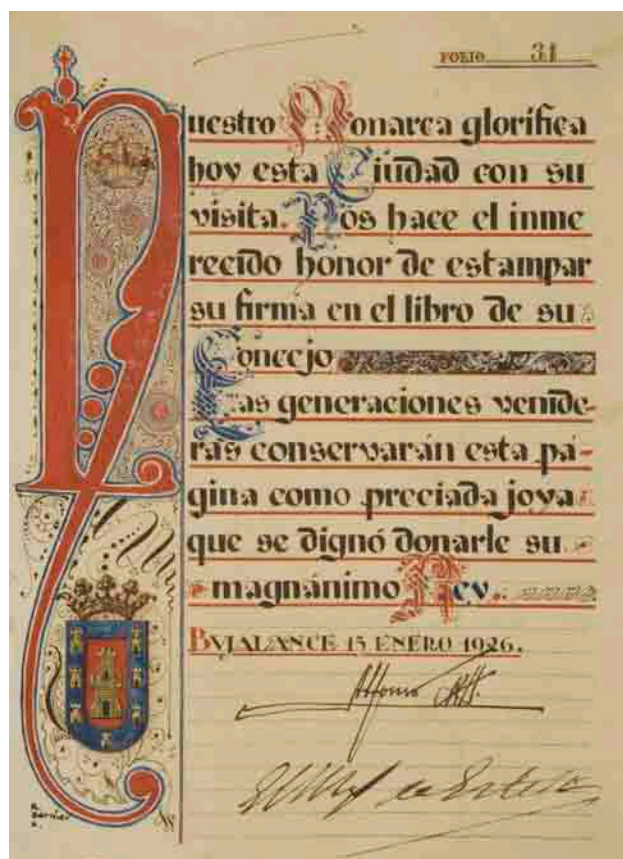 FOLIO 31
Nuestro Monarca glorifica
hoy esta Ciudad con su
visita. Nos hace el inme
recido honor de estampar
su firma en el libro de su
Concejo
Las generaciones venide-
ras conservarán esta pá-
gina como preciada joya
que se dignó donarle su
magnánimo Rey.
BVJALANCE 15 ENERO 1926.
Alfonso XIII.
de Estella